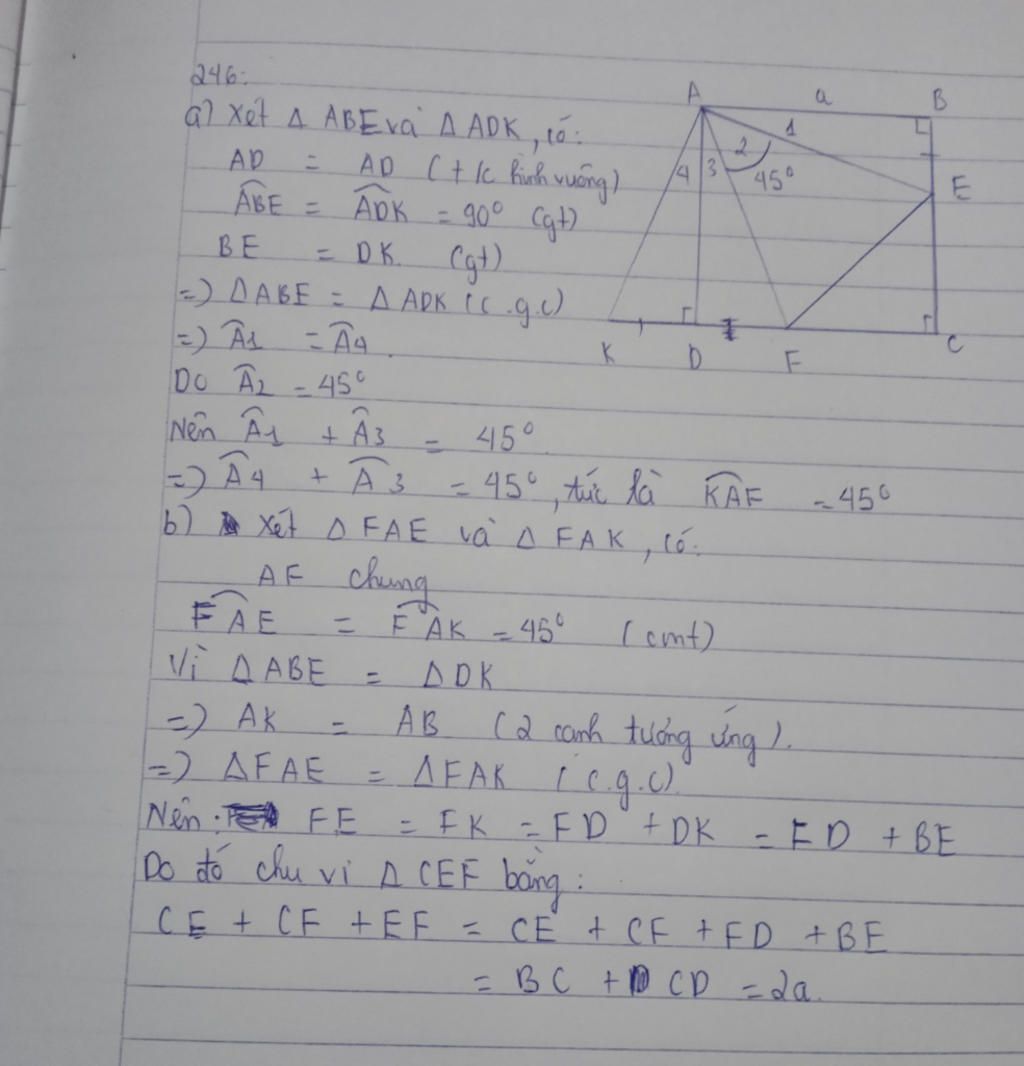 246:
a) Xét Δ ABE và Δ ADK, có:
AD = AD (t/c hình vuông)
ABE = ADK = 90° (gt)
BE = DK (gt)
=) ΔABE = Δ ADK (c.g.c)
=) Â1 = Â4.
Do Â2 = 45°
Nên Â1 + Â3 = 45°
=) Â4 + Â3 = 45°, tức là KAF = 45°
b) Xét Δ FAE và Δ FAK, có:
AF chung
FAE = FAK = 45° (cmt)
Vì ΔABE = ΔDK
=) AK = AB (2 cạnh tương ứng).
=) ΔFAE = ΔFAK (c.g.c)
Nên: FE = FK = FD + DK = FD + BE
Do đó chu vi Δ CEF bằng:
CE + CF + EF = CE + CF + FD + BE
= BC + CD = 2a.
A a B
1
2
4 3 45°
E
K D F C